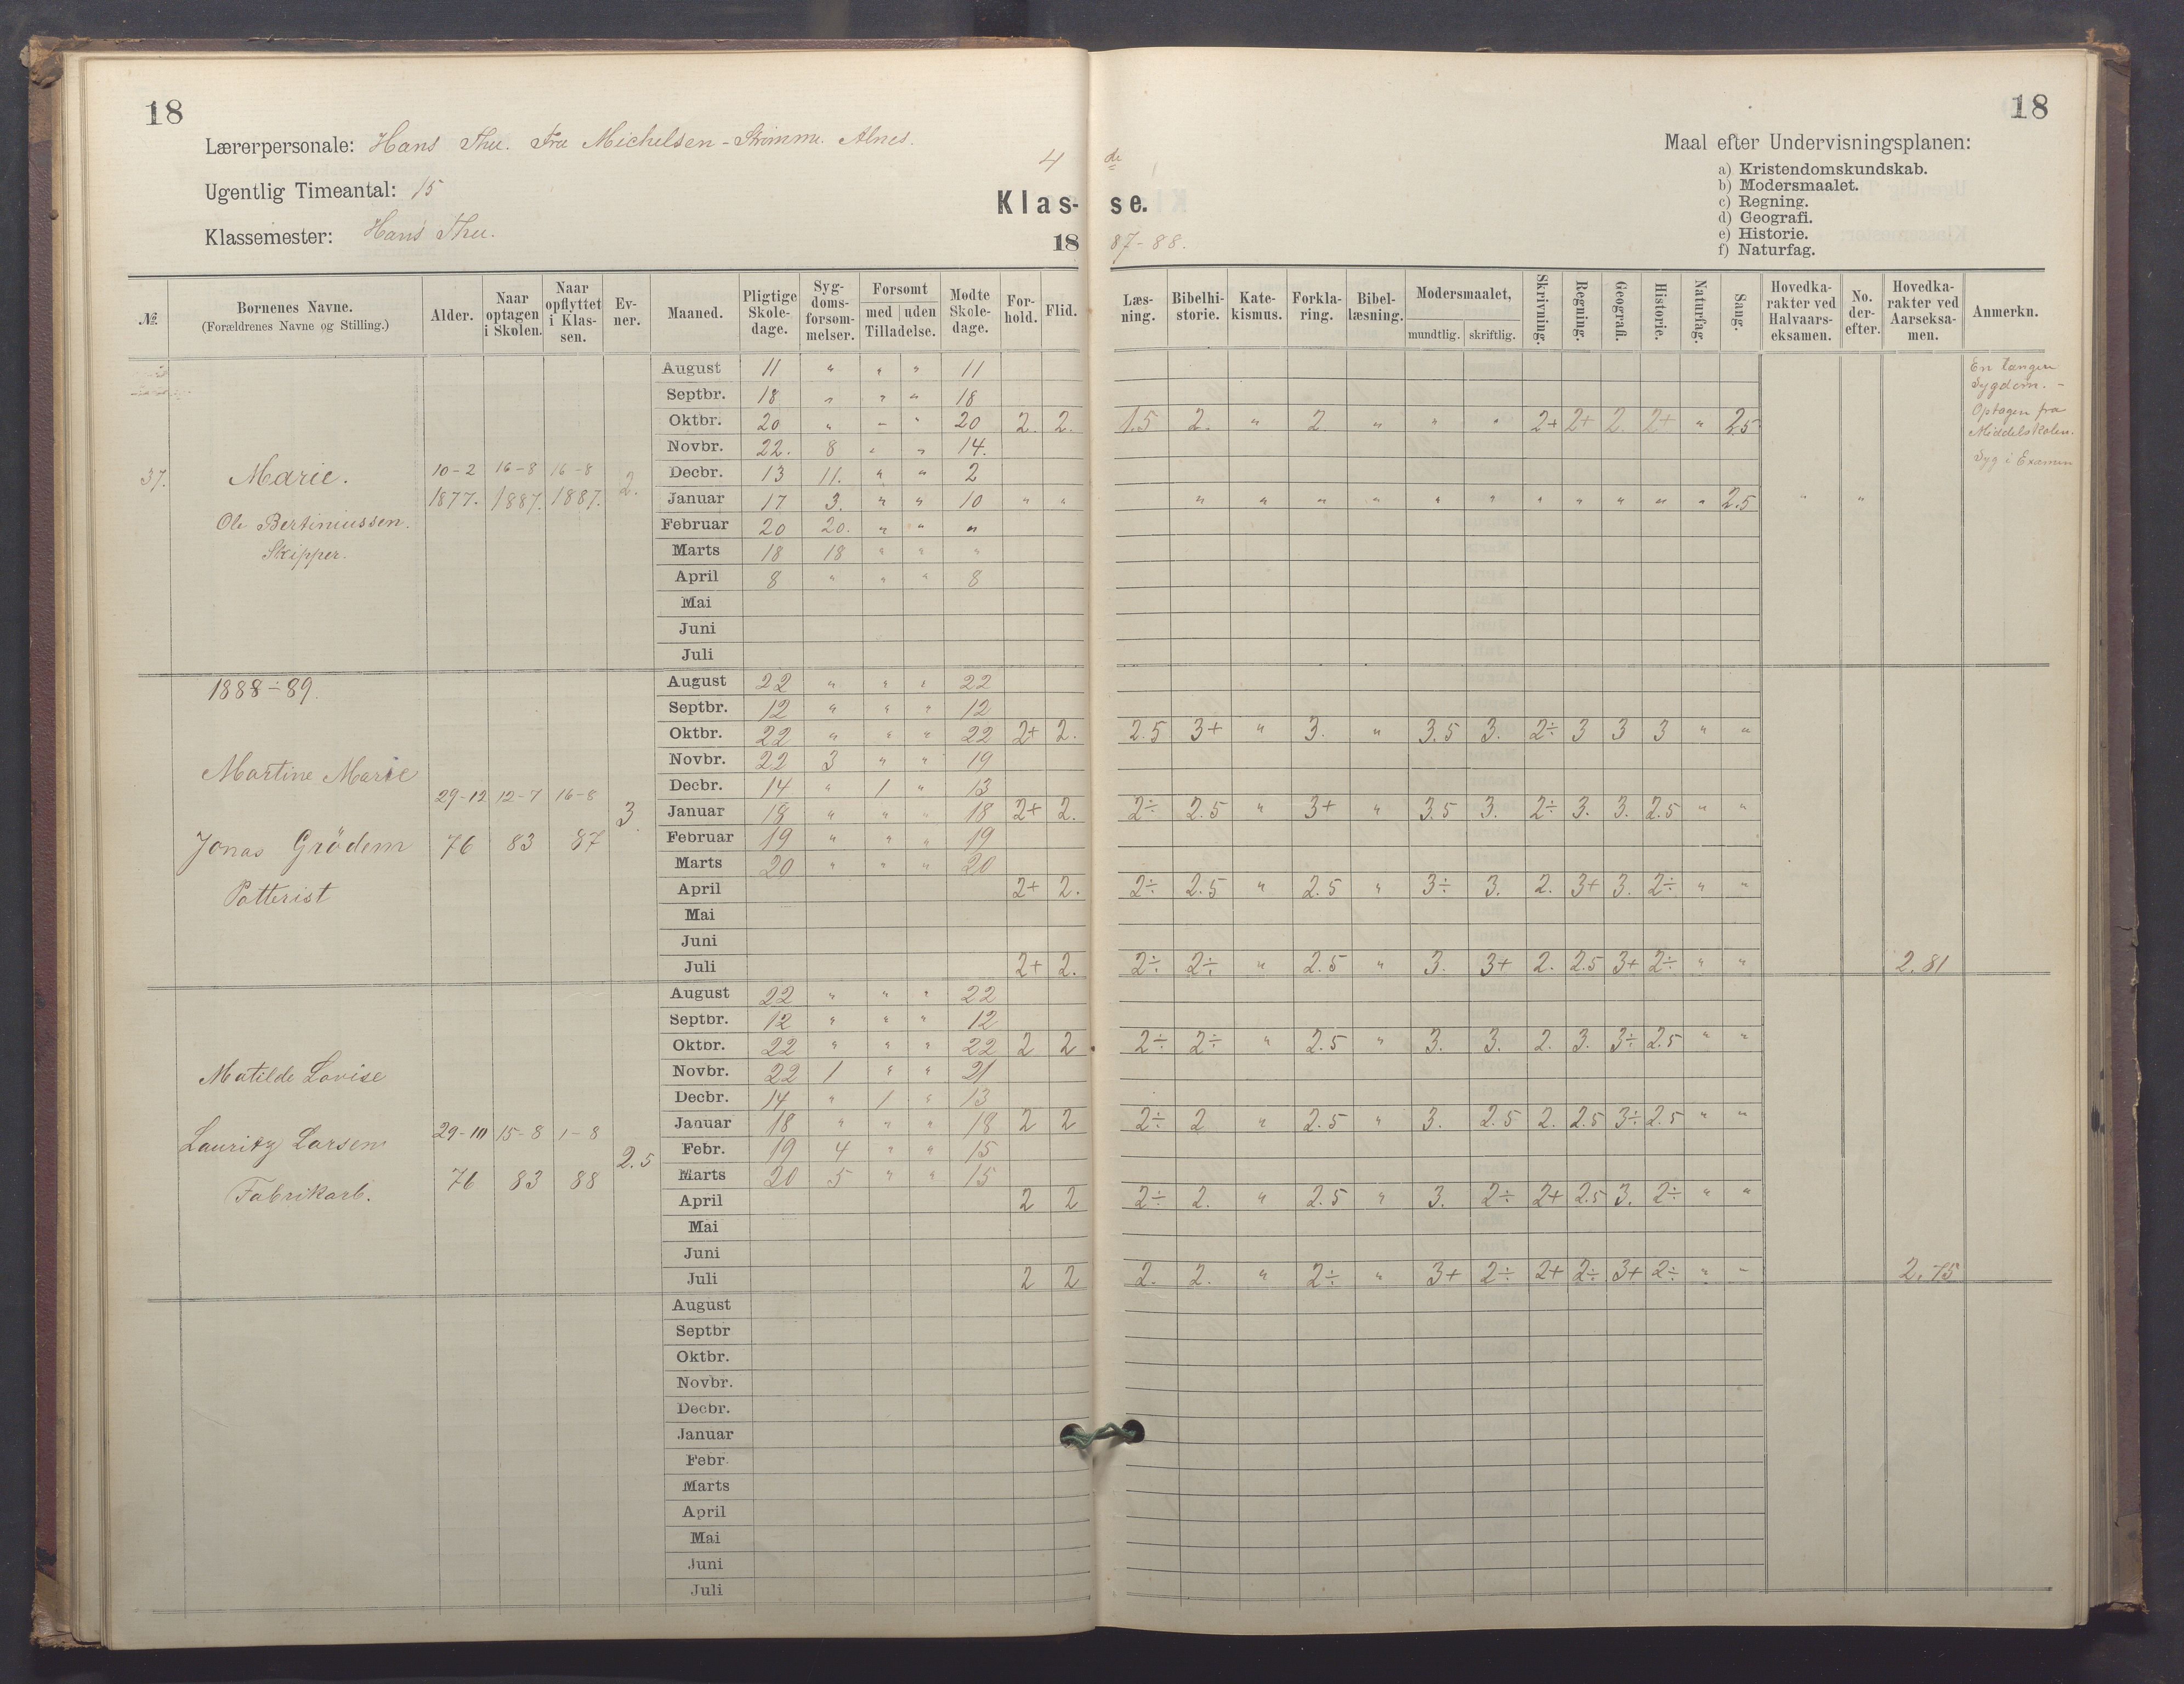 18
18
Lærerpersonale: Hans Thu. Fru Michelsen - Strømme. Alnes.
Ugentlig Timeantal: 15
Klassemester: Hans Thu.
4 de
Klas- se.
18 87-88.
Maal efter Undervisningsplanen:
a) Kristendomskundskab.
b) Modersmaalet.
c) Regning.
d) Geografi.
e) Historie.
f) Naturfag.
№. Bornenes Navne. (Forældrenes Navne og Stilling.) Alder. Naar optagen i Skolen. Naar opflyttet i Klas-sen. Ev-ner. Maaned. Pligtige Skole-dage. Syg-doms-forsom-melser. Forsomt med uden Tilladelse. Modte Skole-dage. For-hold. Flid. Læs-ning. Bibelhi-storie. Kate-kismus. Forkla-ring. Bibel-læsning. Modersmaalet, mundtlig. skriftlig. Skrivning. Regning. Geografi. Historie. Naturfag. Sang. Hovedka-rakter ved Halvaars-eksamen. No. der-efter. Hovedka-rakter ved Aarseksa-men. Anmerkn.
37. Marie.
Ole Bertiniussen.
Skipper.
10-2 16-8 16-8
1877. 1887. 1887. 2.
August 11 " " " 11
Septbr. 18 " " " 18
Oktbr. 20 " " " 20 2. 2. 1.5 2. " 2. " " " 2+ 2+ 2. 2+ " 2.5
Novbr. 22. 8 " " 14.
Decbr. 13 11. " " 2
Januar 17 3. " " 10 " " " " " " " " " " " " " 2.5 " "
Februar 20 20. " " "
Marts 18 18 " " "
April 8 " " " 8
Mai
Juni
Juli
En længere
Sygdom. -
Optagen fra
Middelskolen.
Syg i Examen
1888-89.
Martine Marie
Jonas Grödem
Potterist
29-12 12-7 16-8
76 83 87 3.
August 22 " " " 22
Septbr. 12 " " " 12
Oktbr. 22 " " " 22 2+ 2. 2.5 3+ " 3. " 3.5 3. 2÷ 3 3 3 " "
Novbr. 22 3 " " 19
Decbr. 14 " 1 " 13
Januar 18 " " " 18 2+ 2. 2÷ 2.5 " 3+ " 3.5 3. 2÷ 3. 3. 2.5 " "
Februar 19 " " " 19
Marts 20 " " " 20
April 2+ 2. 2÷ 2.5 " 2.5 " 3÷ 3. 2. 3+ 3. 2÷ " "
Mai
Juni
Juli 2+ 2. 2÷ 2÷ " 2.5 " 3. 3+ 2. 2.5 3+ 2÷ " " 2.81
Matilde Lovise
Lauritz Larsen
Fabrikarb.
29-10 15-8 1-8
76 83 88 2.5
August 22 " " " 22
Septbr. 12 " " " 12
Oktbr. 22 " " " 22 2 2 2÷ 2÷ " 2.5 " 3. 3. 2. 3. 3÷ 2.5 " "
Novbr. 22 1 " " 21
Decbr. 14 " 1 " 13
Januar 18 " " " 18 2 2 2÷ 2 " 2.5 " 3. 2.5 2. 2.5 3÷ 2.5 " "
Febr. 19 4 " " 15
Marts 20 5 " " 15
April 2 2 2÷ 2. " 2.5 " 3. 2÷ 2+ 2.5 3. 2÷ " "
Mai
Juni
Juli 2 2 2. 2. " 2÷ " 3+ 2÷ 2+ 2÷ 3+ 2÷ " " 2.75
August
Septbr
Oktbr.
Novbr.
Decbr.
Januar
Febr.
Marts
April
Mai
Juni
Juli